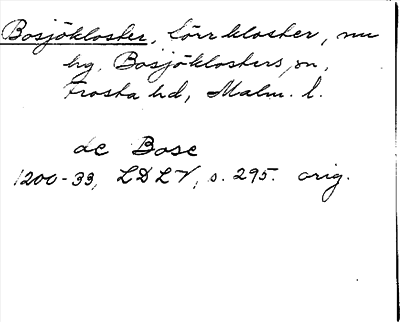 Bosjökloster, förr kloster, nu
hg, Bosjöklosters sn,
Frosta hd, Malm. l.
de Bose
1200-33, LDLV, s. 295. orig.